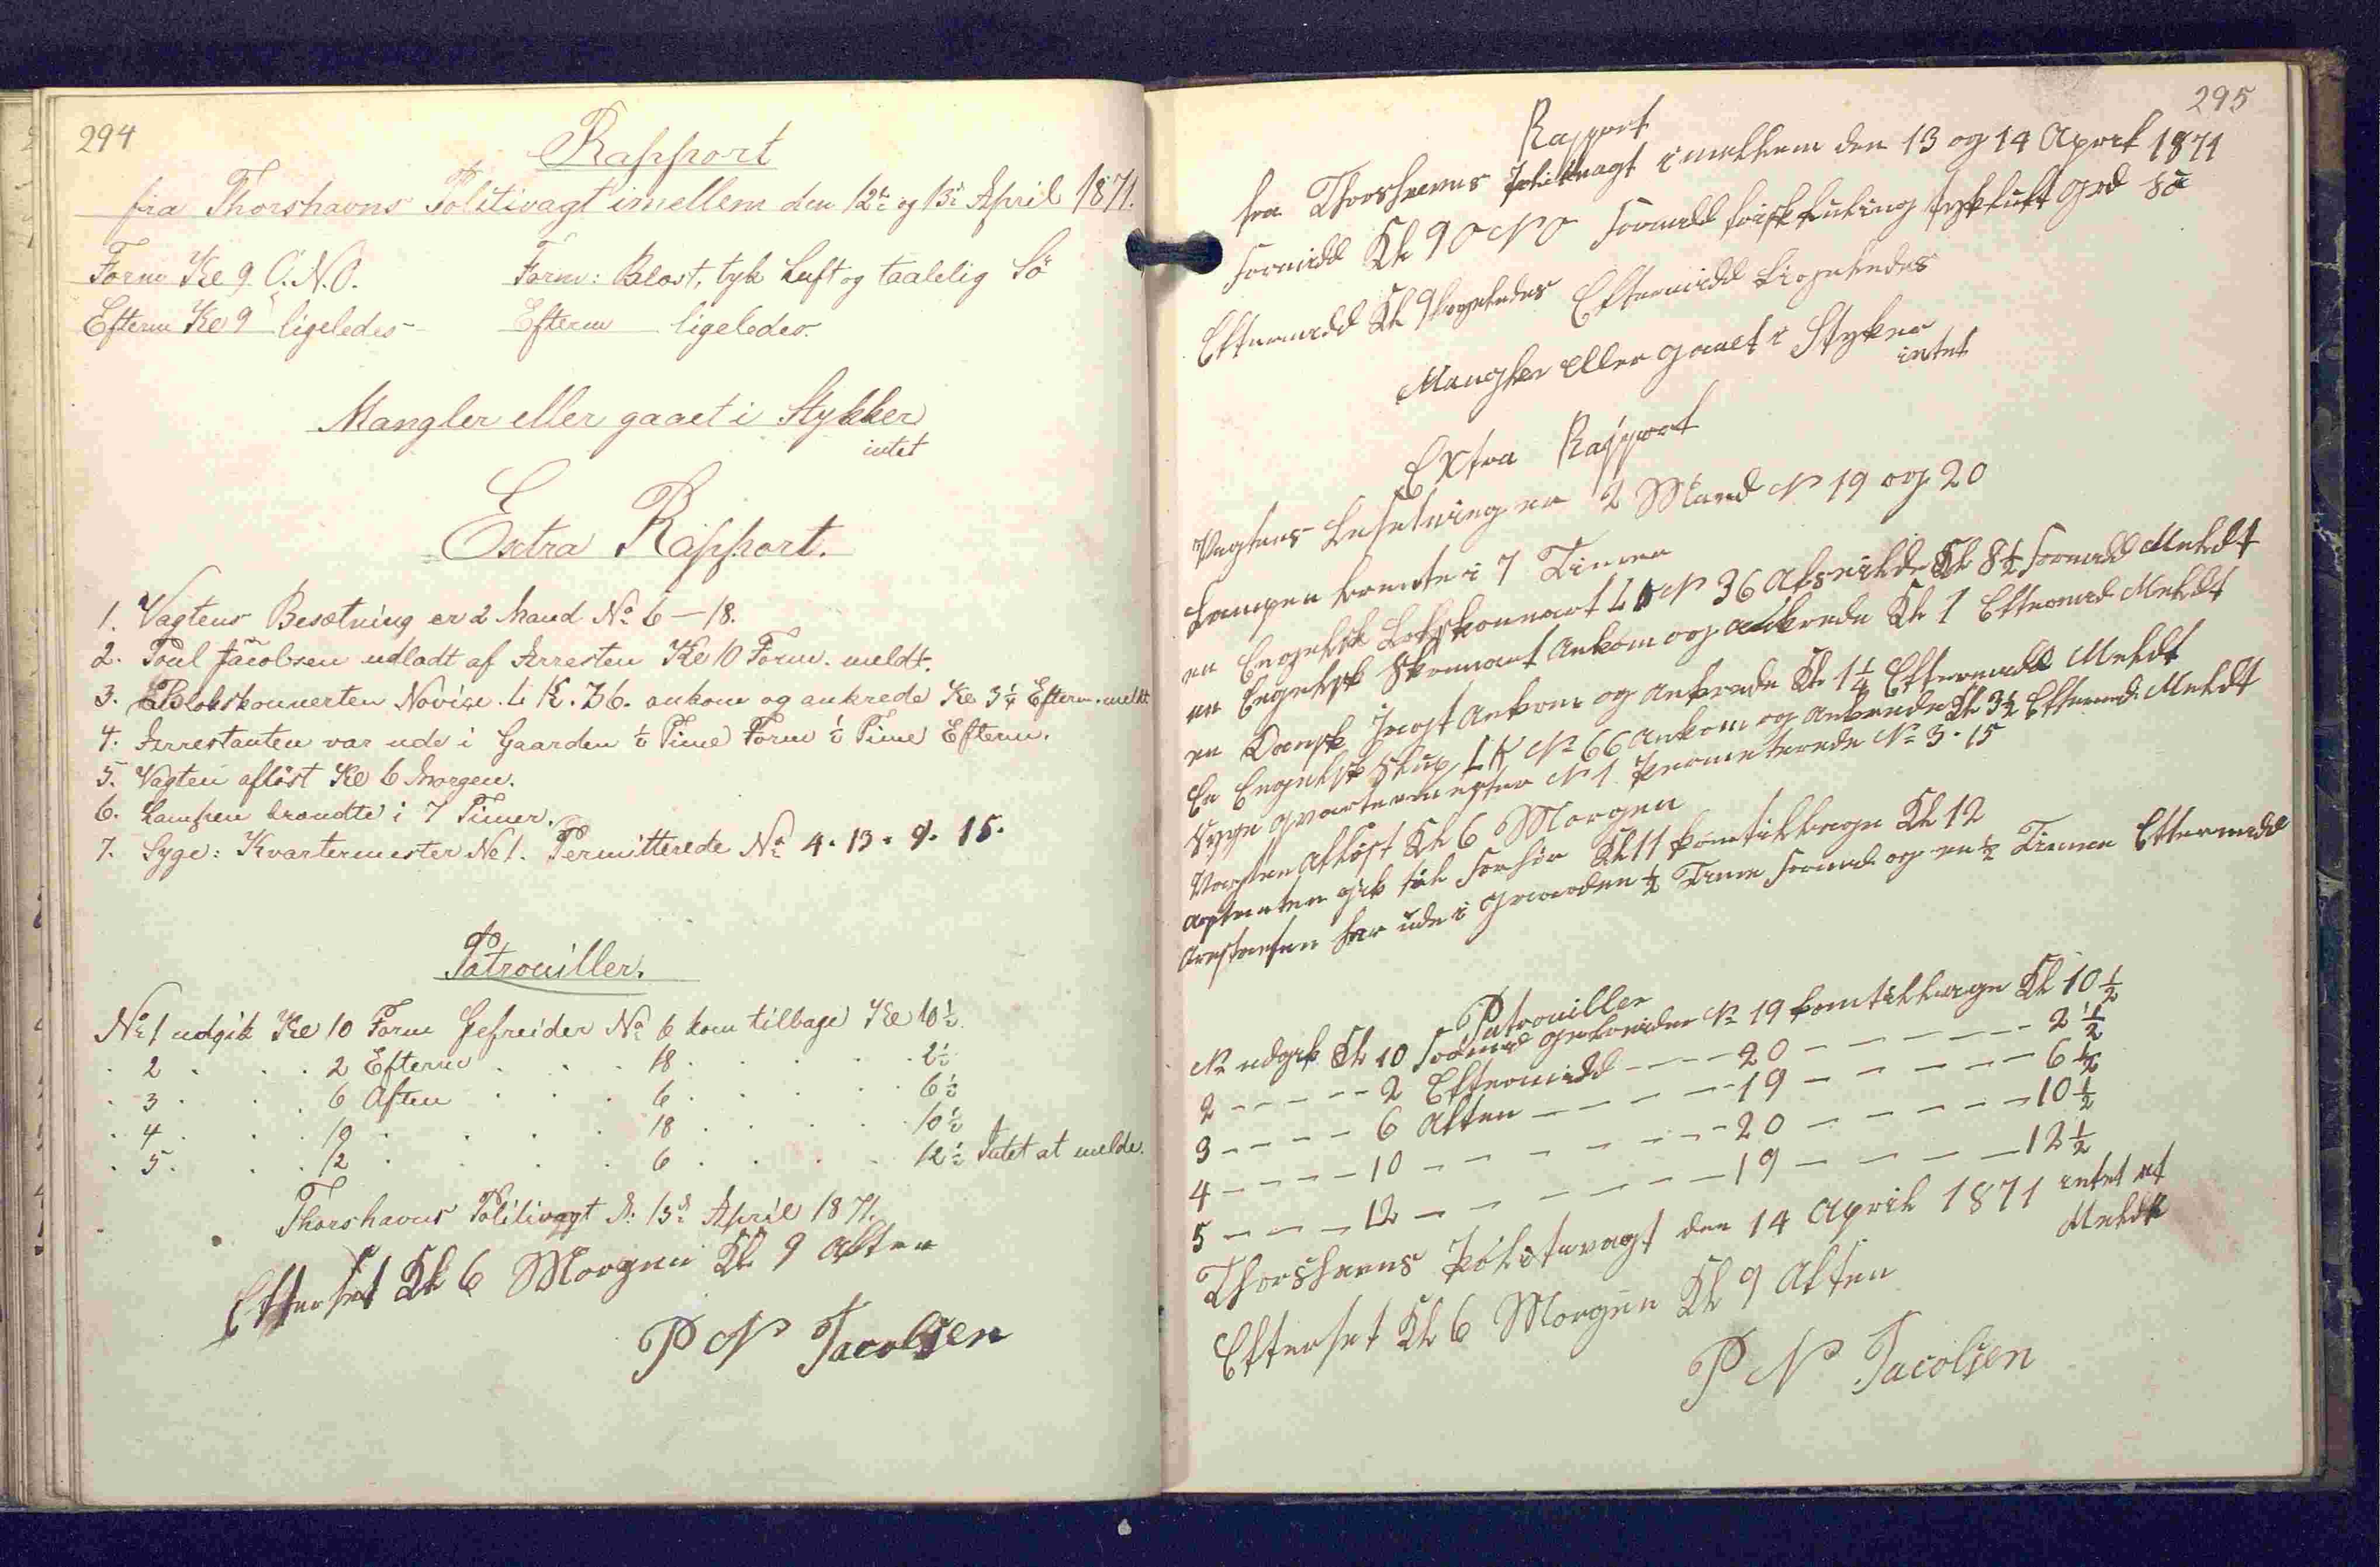 294
Rapport
fra Thorshavns Politivagt imellem den 12te og 13de April 1871.
Form Kl 9 O.N.O. Form: Blæst, tyk Luft og taalelig Sö
Efterm Kl 9 ligeledes Efterm ligeledes.
Mangler eller gaaet i Stykker
intet
Extra Rapport.
1. Vagtens Besætning er 2 Mand No 6 - 18.
2. Poul Jacobsen udladt af Arresten Kl 10 Form. meldt.
3. Blokskonnerten Novise. L K. 36. ankom og ankrede Kl 3 1/4 Efterm. meldt
4. Arrestanten var ude i Gaarden 1/2 Time Form 1/2 Time Efterm.
5. Vagten aflöst Kl 6 Morgen.
6. Lampen brændte i 7 Timer.
7. Syge: Kvartermester No 1. Permitterede No 4. 13. 9. 15.
Patrouiller.
No 1 udgik Kl 10 Form Gefreider No 6 kom tilbage Kl 10 1/2
. 2 . . . 2 Efterm . . . 18 . . . . 2 1/2
. 3 . . . 6 Aften . . . 6 . . . . 6 1/2
. 4 . . . 10 . . . . 18 . . . . 10 1/2
. 5 . . . 12 . . . . 6 . . . . 12 1/2 Intet at melde.
Thorshavns Politivagt d. 13de April 1871.
Efterset Kl 6 Morgen Kl 9 Aften
P N Jacobsen
295
Rapport
fra Thorshavns Politivagt imellem den 13 og 14 April 1871
Formidd Kl 9 O N O Formidd frisk Kuling tyk Luft god Sö
Eftermidd Kl 9 Ligeledes Eftermidd Ligeledes
Mangler eller gaaet i Styker
intet
Extra Rapport
Vagtens Besetning er 2 Mand N 19 og 20
Lampen brente i 7 Timer
en Engelsk Skonnart L K N 36 Afseilede Kl 8 1/2 Formidd Meldt
en Engelsk Skonnart Ankom og ankrede Kl 1 Eftermid Meldt
en Dansk Jagt Ankom og ankrede Kl 1 1/4 Eftermidd Meldt
En Engelsk Slup L K No 66 Ankom og Ankrede Kl 3 1/2 Eftermd. Meldt
Syge qvartermester N 1 Permeterede No 3. 15
Vagten Aflöst Kl 6 Morgen
Arestanten gik til Forhör Kl 11 kom tilbage Kl 12
Arestanten har ude i Gaarden 1/2 Time Formd og en 1/2 Time Eftermidd
Patrouiller
No udgik Kl 10 Formid Gefreider No 19 kom tilbage Kl 10 1/2
2 - - - - - 2 Eftermidd - - - 20 - - - - - - 2 1/2
3 - - - - 6 Aften - - - - - 19 - - - - - - 6 1/2
4 - - - - 10 - - - - - - - 20 - - - - - - 10 1/2
5 - - - 12 - - - - - - 19 - - - - 12 1/2
Thorshavns Politivagt den 14 April 1871 intet at
Meldt
Efterset Kl 6 Morgen Kl 9 Aften
P N Jacobsen